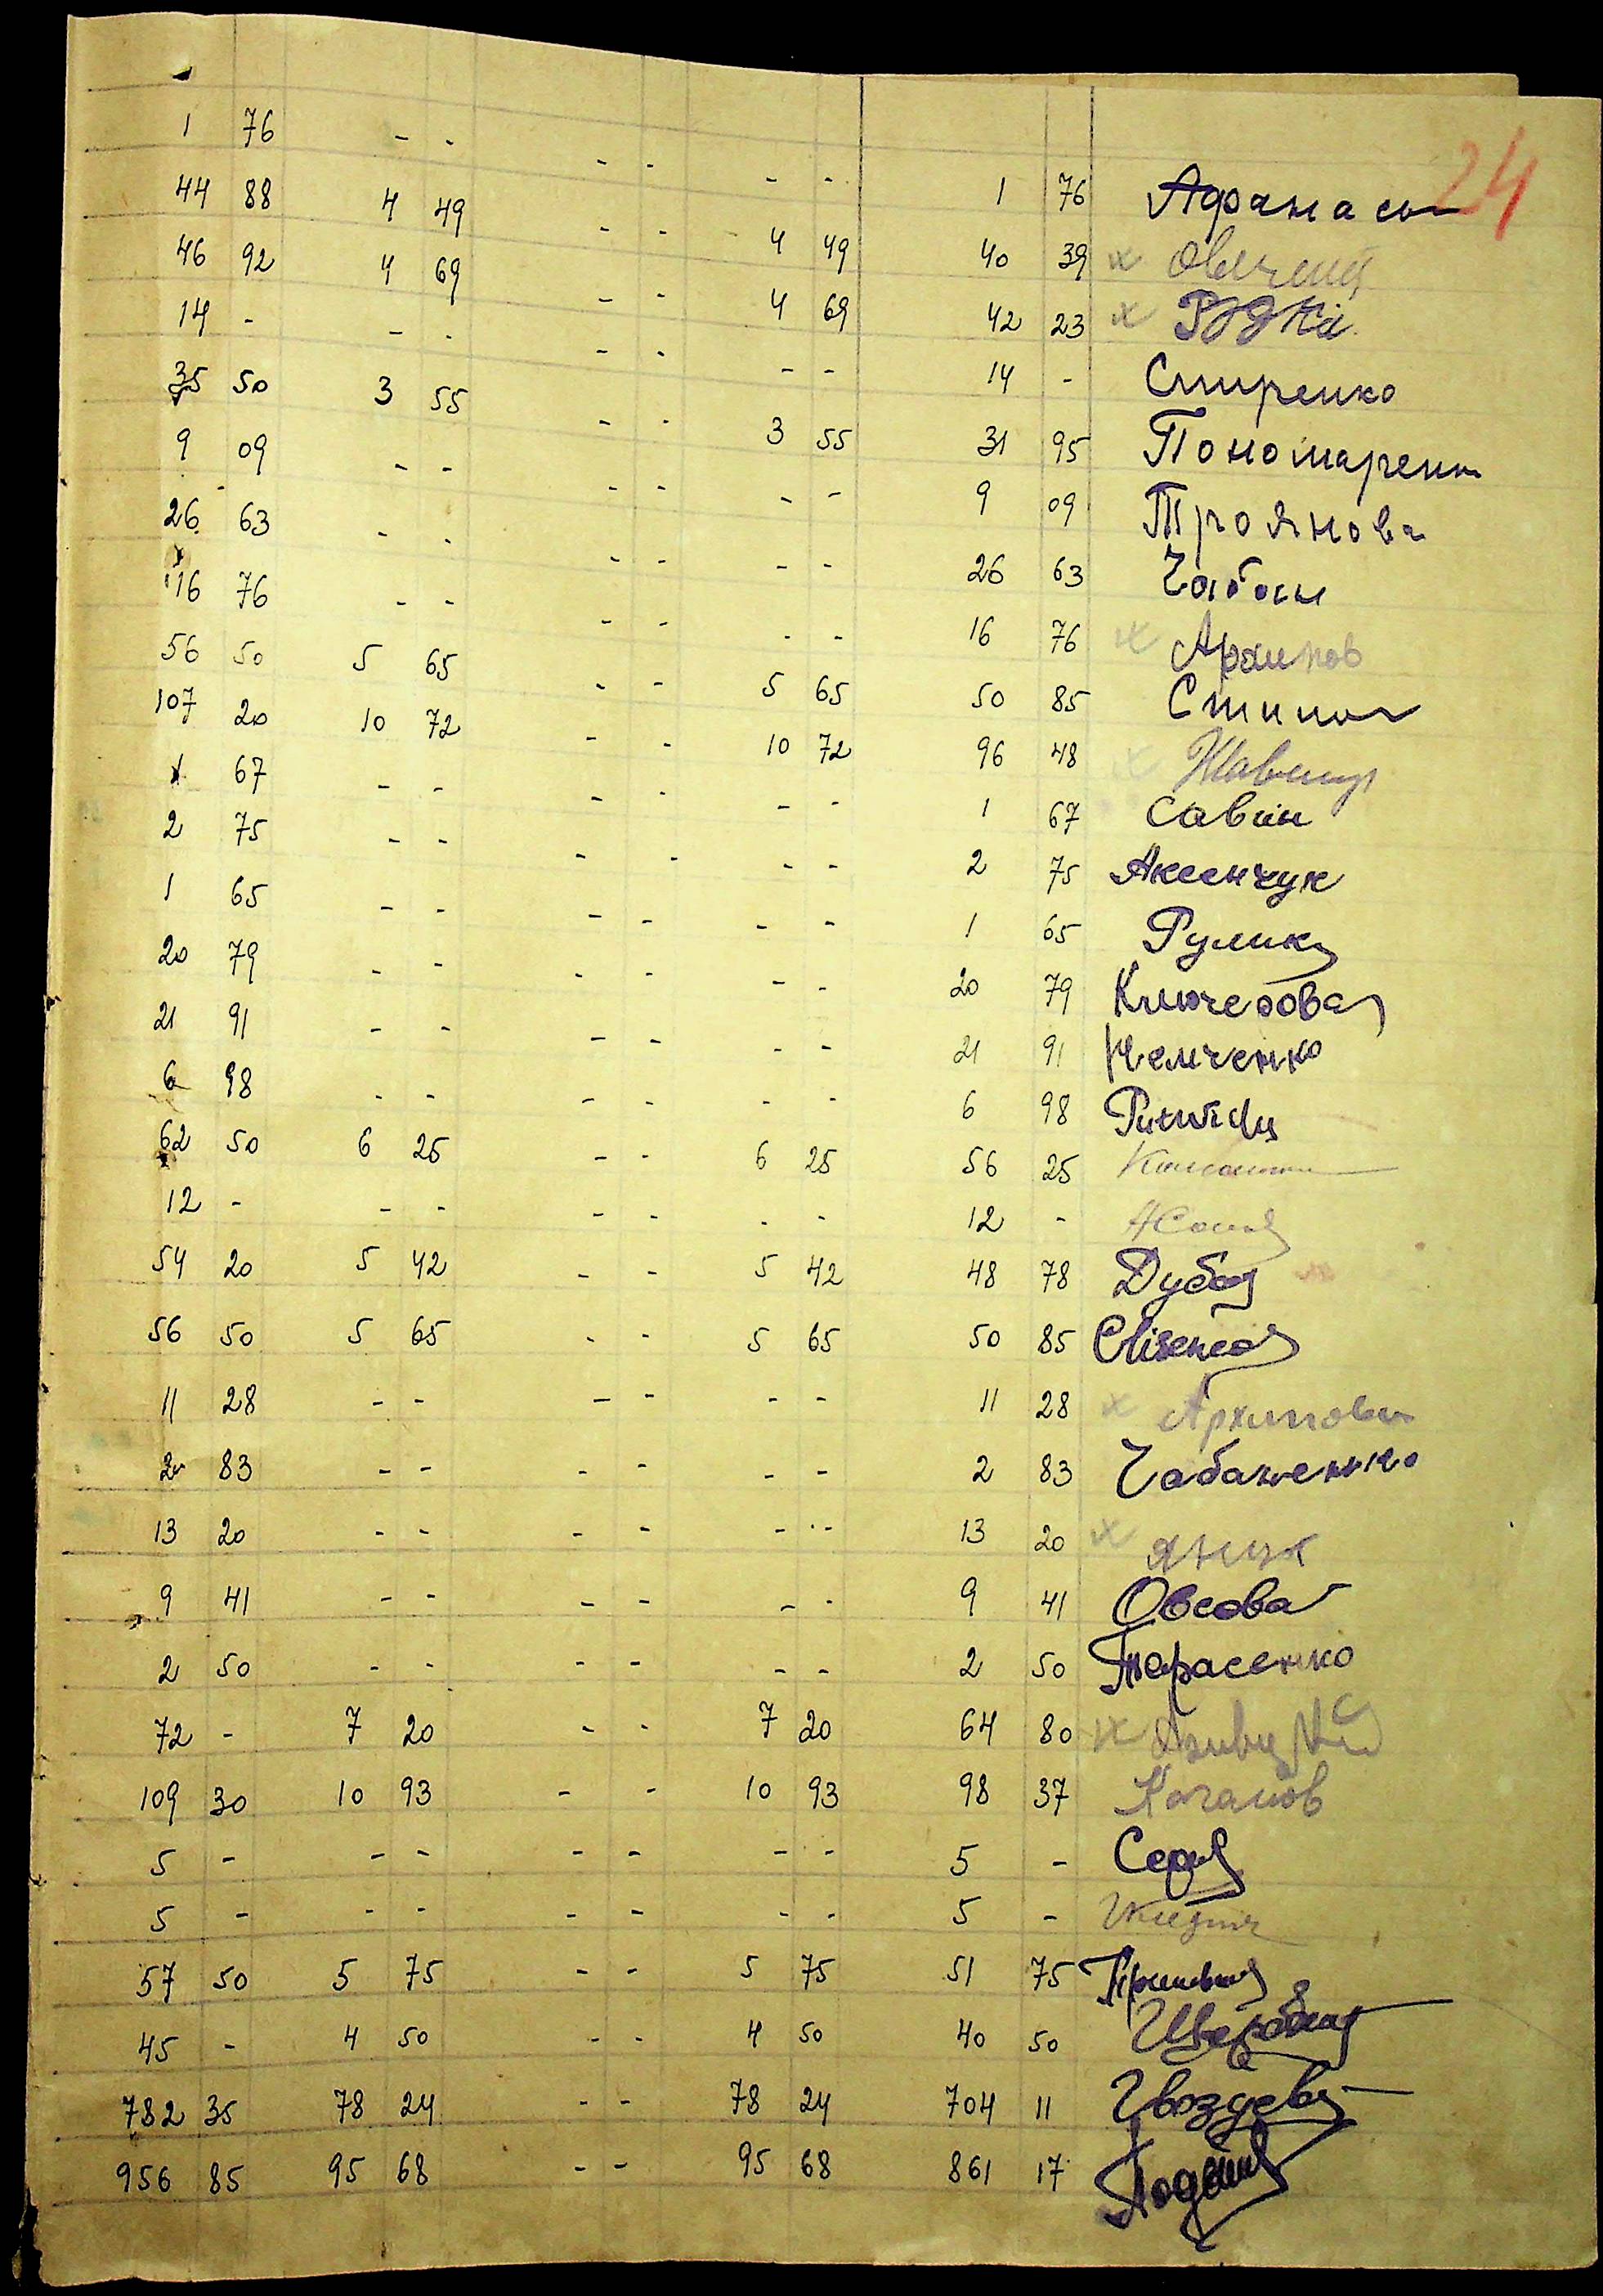 24
1 76 - - - - - - 1 76 Афанасье
44 88 4 49 - - 4 49 40 39 х
46 92 4 69 - - 4 69 42 23 х
14 - - - - - - - 14 - Спиренко
35 50 3 55 - - 3 55 31 95 Пономаренко
9 09 - - - - - - 9 09 Троянова
26 63 - - - - - - 26 63 Чабан
16 76 - - - - - - 16 76 х Архипов
56 50 5 65 - - 5 65 50 85
107 20 10 72 - - 10 72 96 48 х
1 67 - - - - - - 1 67 Савин
2 75 - - - - - - 2 75 Аксенчук
1 65 - - - - - - 1 65 Рулик
20 79 - - - - - - 20 79
21 91 - - - - - - 21 91 Немченко
6 98 - - - - - - 6 98
62 50 6 25 - - 6 25 56 25
12 - - - - - - - 12 -
54 20 5 42 - - 5 42 48 78 Дубов
56 50 5 65 - - 5 65 50 85
11 28 - - - - - - 11 28 х Архипова
2 83 - - - - - - 2 83 Чабаненко
13 20 - - - - - - 13 20 х Янчук
9 41 - - - - - - 9 41 Овсова
2 50 - - - - - - 2 50 Тарасенко
72 - 7 20 - - 7 20 64 80 х
109 30 10 93 - - 10 93 98 37 Качанов
5 - - - - - - - 5 -
5 - - - - - - - 5 -
57 50 5 75 - - 5 75 51 75
45 - 4 50 - - 4 50 40 50
782 35 78 24 - - 78 24 704 11 Гвоздев
956 85 95 68 - - 95 68 861 17